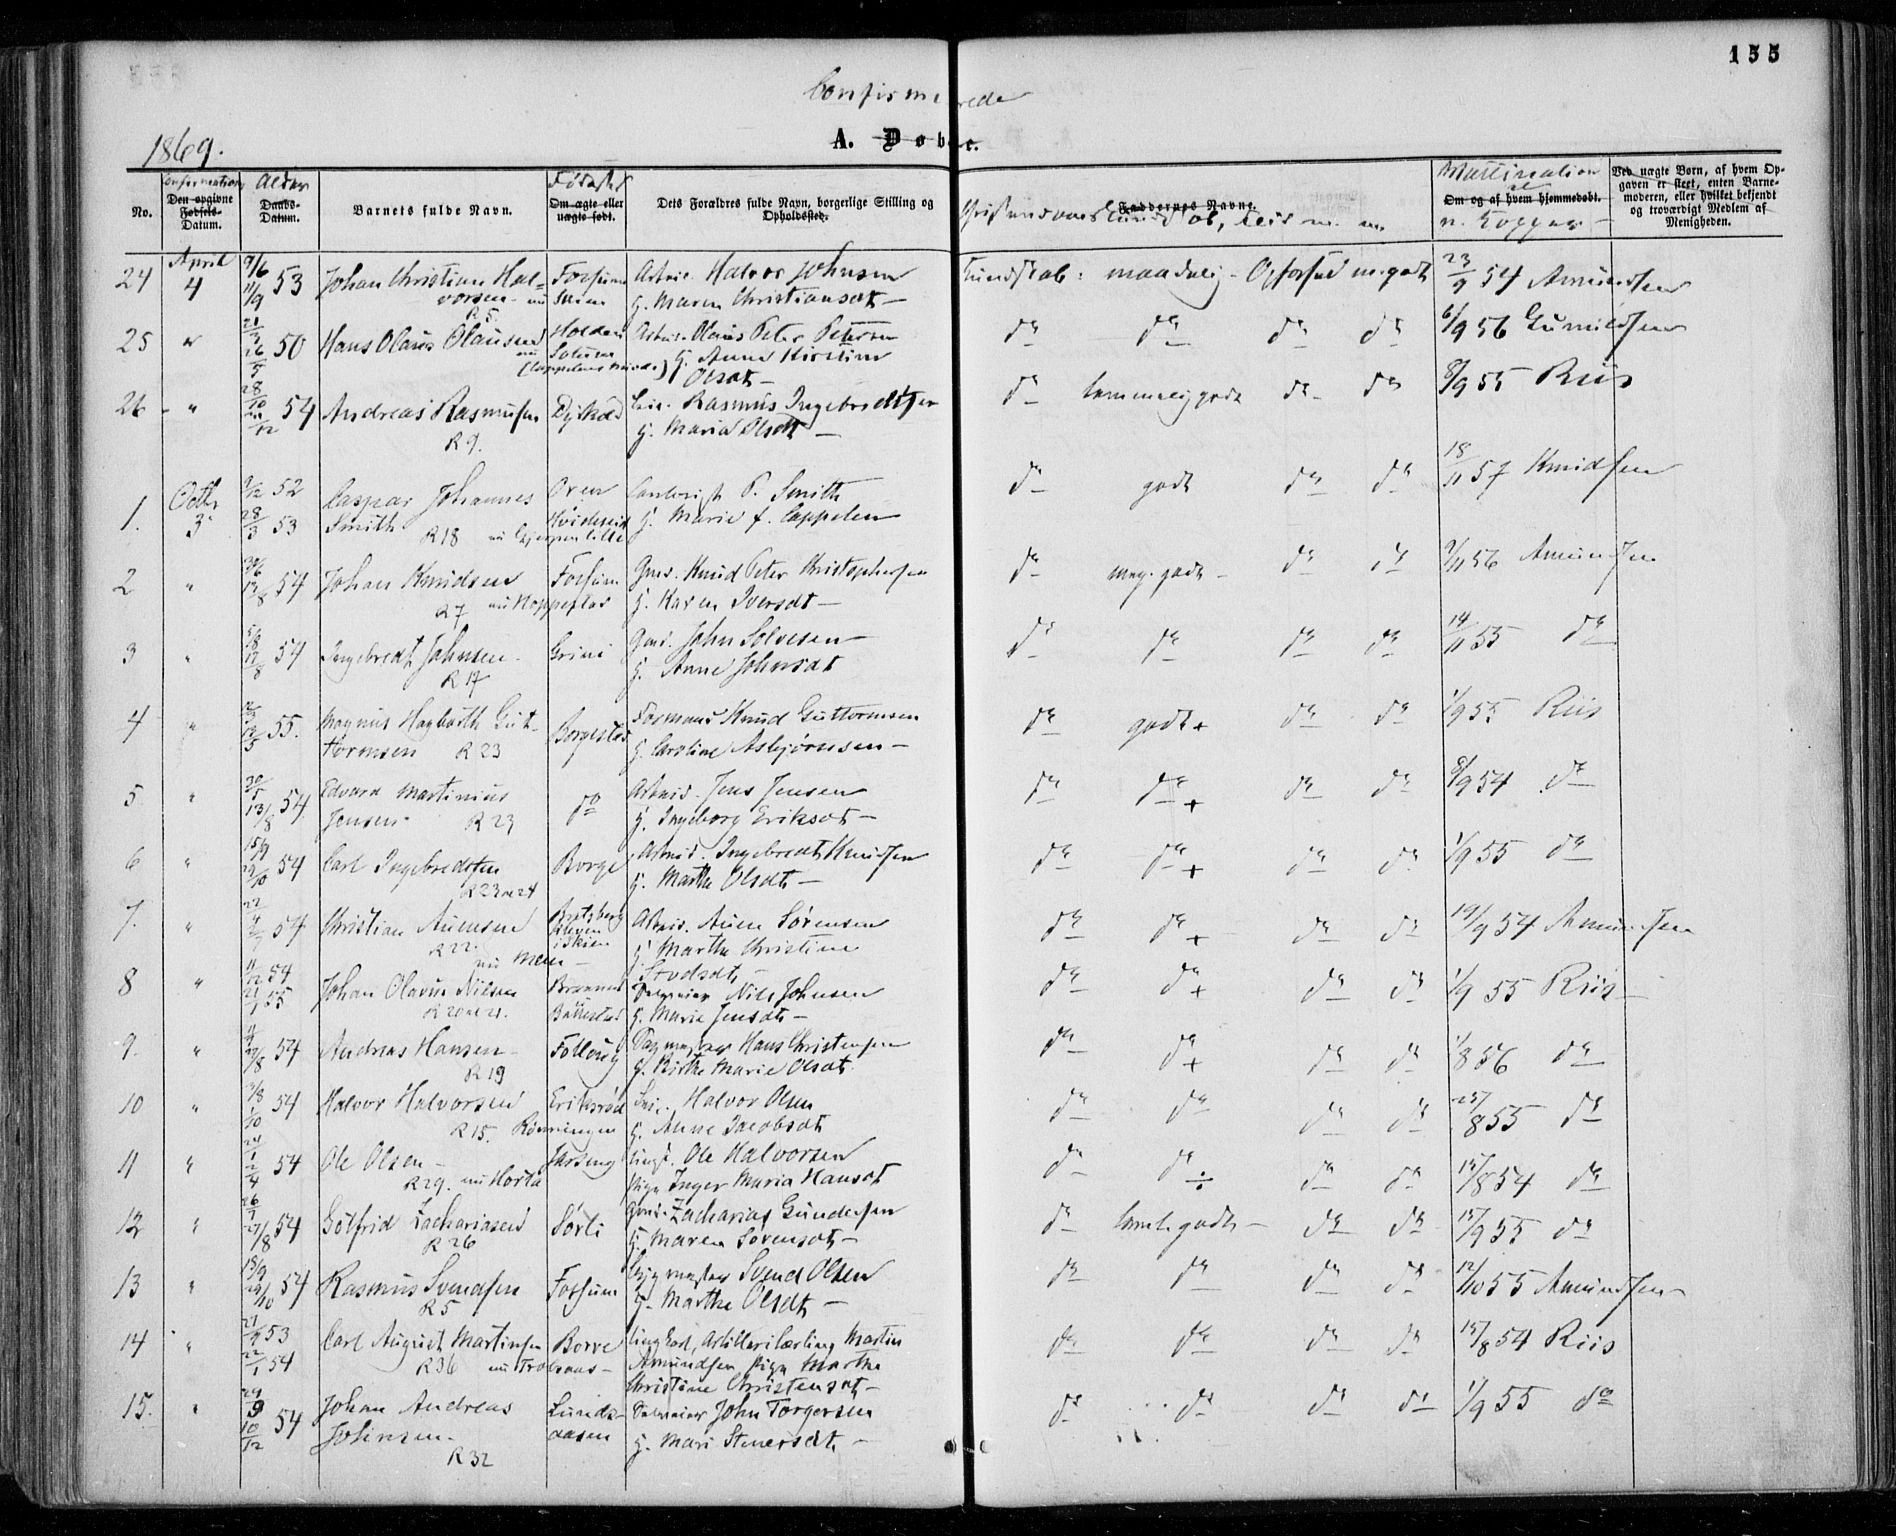 155
Confirmerede
1869.
A. Døbte.
No.
Confirmations
Den opgivne Fødsels-Datum.
Alder
Daabs-Datum.
Barnets fulde Navn.
Fødested
Om ægte eller uægte født.
Dets Forældres fulde Navn, borgerlige Stilling og Opholdssted.
Christendomskundskab, Flid m. m.
Faddernes Navne.
Vaccination
Om og af hvem hjemmedøbt.
n. Kopper
Ved uægte Børn, af hvem Opgaven er skeet, enten Barnemoderen, eller hvilket betjendt og troværdigt Medlem af Menigheden.
24 April 4 9/6 11/9 53 Johan Christian Halvorsen R 5. Fossum Arbeid. Halvor Johnsen
G. Maren Christiansdt. Kundskab: maadelig Opførsel m. godt 23/9 54 Amundsen
25 " 21/3 26/5 50 Hans Olaus Olausen Holden Solum Arbeid. Olaus Peter Petersen
G. Anne Kirstine Olsdt. do do do do 6/9 56 Gunildsen
26 " 28/10 54 Andreas Rasmussen R 9. Rasmus Ingebredtsen
G. Maria Olsdt. do temmelig godt do do 8/9 55 Riis
1. Octbr 3 9/12 52 28/3 53 Caspar Johannes Smith R 18 P. Smith
G. Marie f. Cappelen do godt do do 18/11 57 Knudsen
2 " 54 Johan Knudsen R 7 Fossum Gmd. Knud Peter Christophersen
G. Karen Iversdt. do meg. godt do do 9/11 56 Amundsen
3 " 54 Ingebredt Johnsen R 17 Grini Gmd. John Solvesen
G. Anne Johnsdt do do do do 14/11 55 do
4 " 55. Magnus Hagbarth Guttormsen R 23 Borgestad Formand Knud Guttormsen
G. Caroline Asbjørnsen do godt + do do 1/9 55 Riis
5 " 30/5 13/8 54 Edvard Martinius Jensen R 23 do Arbeid. Jens Jensen
G. Ingeborg Eriksdt. do do + do do 8/9 54 do
6 " 15/9 29/10 54 Carl Ingebredtsen R 23 n 24 Borge Arbeid. Ingebredt Knudsen
G. Marthe Olsdt. do do + do do 1/9 55 do
7. " 54 Christian Auensen R 22. Bratsberg Skien Arbeid. Auen Sørensen
G. Marthe Christine do do + do do 19/9 54 Amundsen
8 " 11/12 54 21/1 55 Johan Olavus Nilsen R 20 n 21. Nils Johnsen
G. Marie Jensdt. do do + do do 1/9 55 Riis
9. " 54 Andreas Hansen R 19 Follaug Hans Christensen
G. Birthe Marie Olsdt. do do + do do 1/8 56 do
10 " 3/8 1/10 54 Halvor Halvorsen R 15. Rønningen Eriksrød Halvor Olsen
G. Anne Jacobsdt do do do do 25/8 55 do
11 " 24/1 2/4 54 Ole Olsen R 29. Ungk. Ole Halvorsen
Pige Inger Maria Hansdt do do ÷ do do 15/8 54 do
12 " 26/7 27/8 54 Gotfrid Zachariasen R 26 Sørli Gmd. Zacharias Gundersen
G. Maren Sørensdt. do teml. godt do do 15/9 55 do
13 " 15/9 54 Rasmus Svendsen R 5 Fossum Svend Olsen
G. Marthe Olsdt. do do do do 12/10 55 Amundsen
14 " 21/9 53 22/1 54 Carl August Martinsen R 36 Borre Ungkarl, Artillerilærling Martin
Amundsen Pige Marthe
Christine Christensdt. do do do do 15/8 54 Riis
15. " 29/9 10/12 54 Johan Andreas Johnsen. R 32 Lundsaasen John Torgersen
G. Mari Stenersdt. do do do do 1/9 55 do